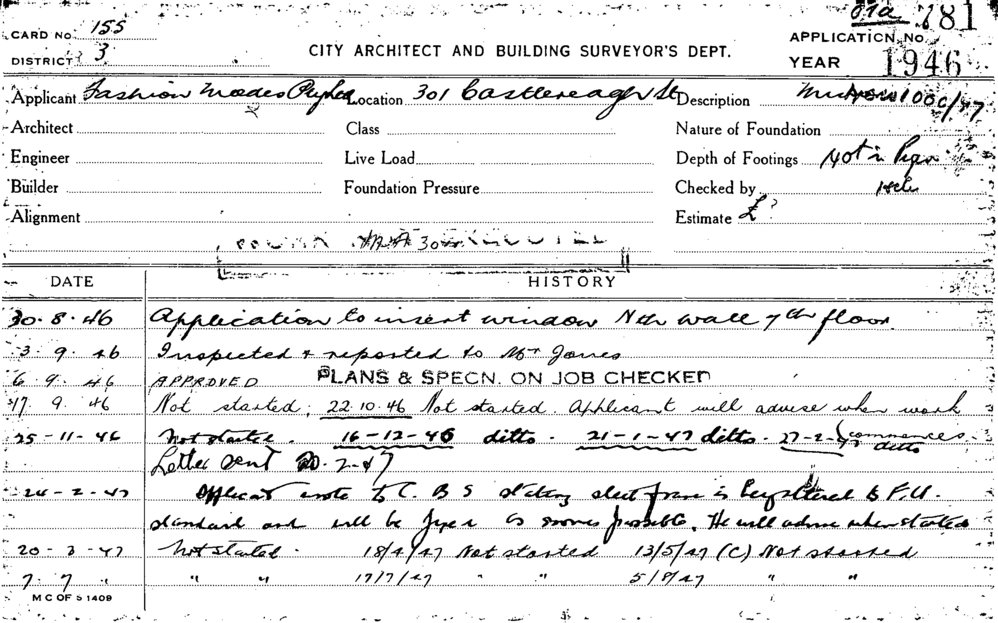 CARD No. 155
DISTRICT 3
CITY ARCHITECT AND BUILDING SURVEYOR'S DEPT.
781
APPLICATION No.
YEAR 1946
Applicant Fashion Modes Location 301 Castlereagh St Description
Architect Class Nature of Foundation
Engineer Live Load Depth of Footings Not in
Builder Foundation Pressure Checked by
Alignment Estimate £?
DATE HISTORY
30.8.46 Application to insert window Nth wall 7th floor.
3.9.46 Inspected & reported to Mr Jones
6.9.46 APPROVED PLANS & SPECN. ON JOB CHECKED
17.9.46 Not started; 22.10.46 Not started. Applicant will advise when work
commences
25-11-46 Not started. 16-12-46 ditto. 21-1-47 ditto. 27-2-47 ditto
Letter sent 20.2-47
24-2-47 Applicant wrote to C.B.S stating steel frame is
standard and will be as soon as possible. He will advise when started
20-3-47 Not started. 18/4/47 Not started 13/5/47 (C) Not started
7.7 " " " 17/7/47 " " 5/8/47 " "
M C OF S 1409